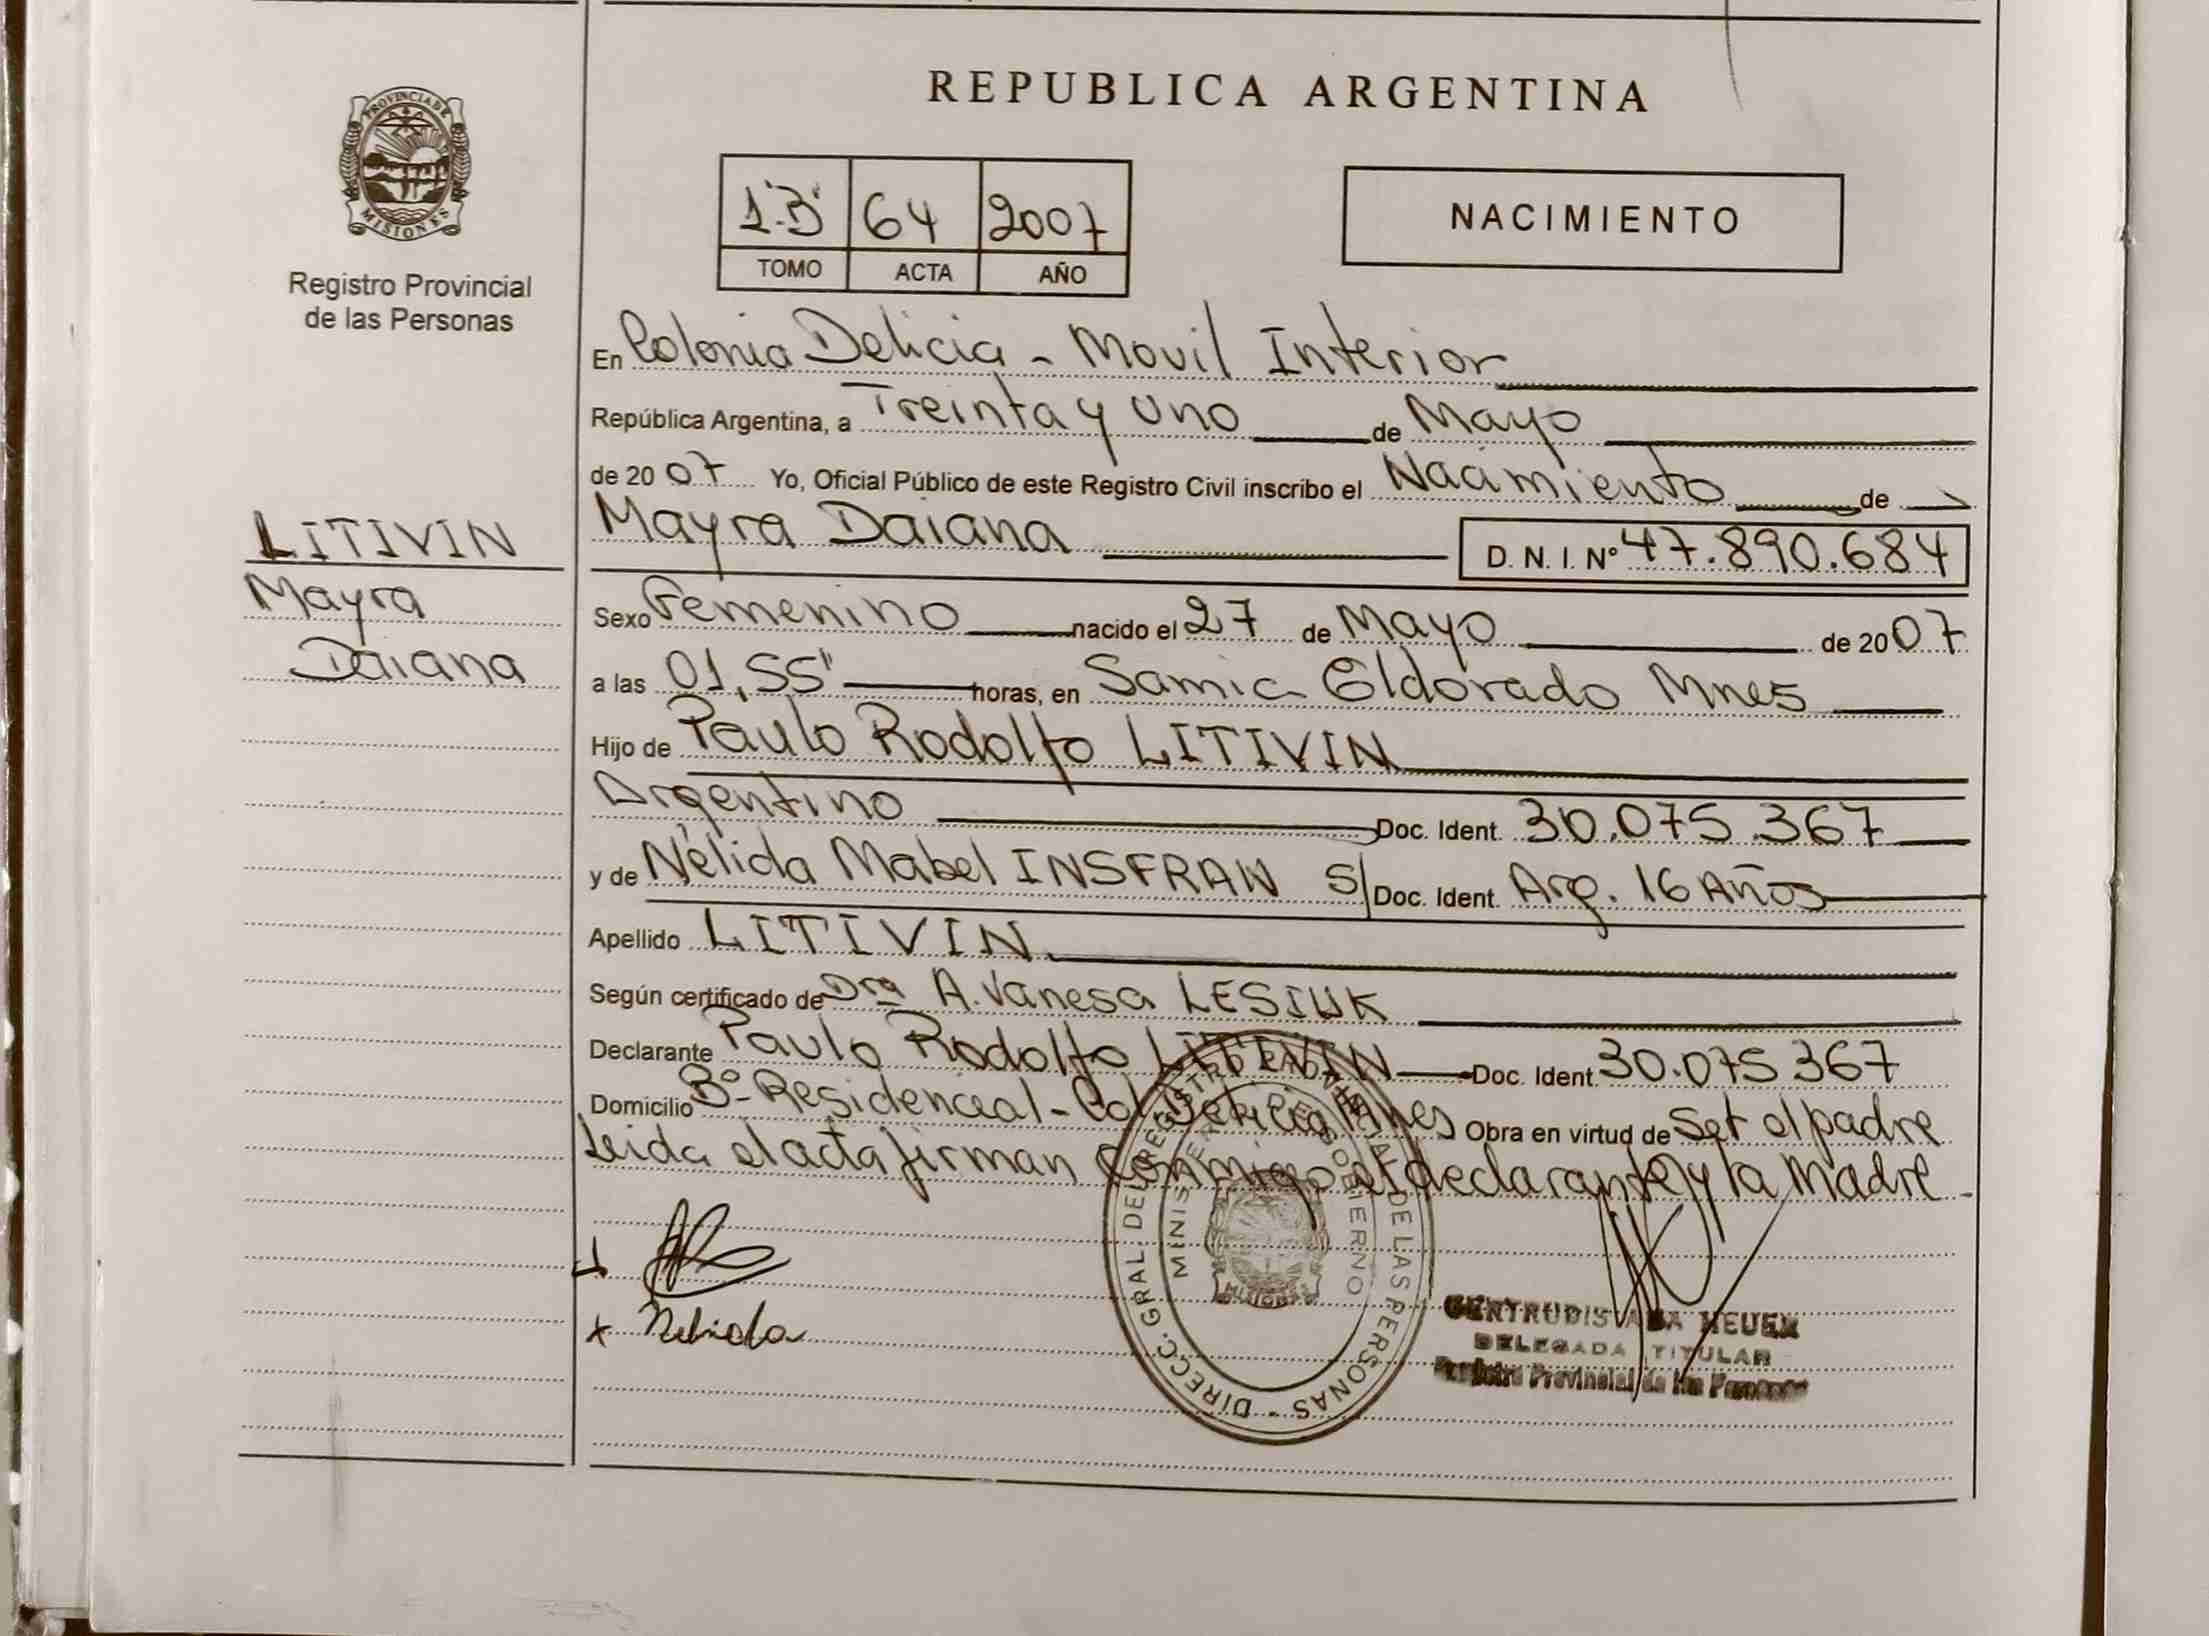 REPUBLICA ARGENTINA
PROVINCIA DE
MISIONES
Registro Provincial
de las Personas
1"B" 64 2007
TOMO ACTA AÑO
NACIMIENTO
En Colonia Delicia - Movil Interior
República Argentina, a Treinta y Uno de Mayo
de 2007 Yo, Oficial Público de este Registro Civil inscribo el Nacimiento de
Mayra Daiana D. N. I. Nº 47.890.684
LITIVIN
Mayra
Daiana
Sexo Femenino nacido el 27 de Mayo de 2007
a las 01,55' horas, en Samic Eldorado Mnes
Hijo de Paulo Rodolfo LITIVIN
Argentino Doc. Ident. 30.075.367
y de Nélida Mabel INSFRAN S/ Doc. Ident. Arg. 16 Años
Apellido LITIVIN
Según certificado de Dra A. Vanesa LESIUK
Declarante Paulo Rodolfo LITIVIN Doc. Ident. 30.075367
Domicilio Bº- Residencial - Col. Delicia Mnes Obra en virtud de Ser el padre
Leida el acta firman conmigo el declarante y la Madre
x Nelida
DIRECC. GRAL. DEL REGISTRO PROVINCIAL DE LAS PERSONAS
MINISTERIO DE GOBIERNO
MISIONES
GERTRUDIS
DELEGADA TITULAR
Registro Provincial de las Personas